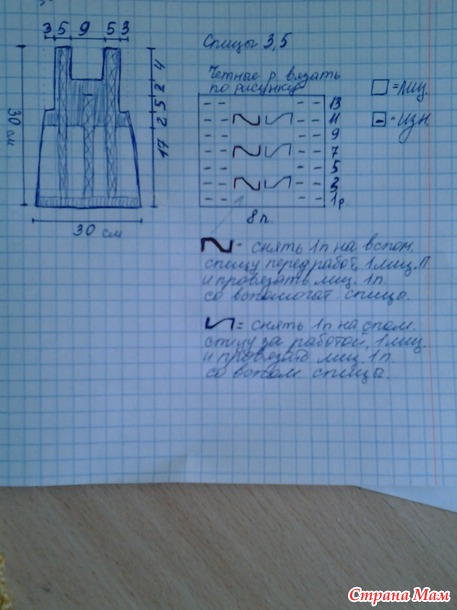 3 5 9 5 3
4
2
5
2
17
30 см
30 см
Спицы 3,5
Четные р. вязать
по рисунку
13
11
9
7
5
3
1р.
8п.
□ = лиц.
- = изн.
= снять 1п на вспом.
спицу перед работ, 1лиц.П
и провязать лиц. 1п
со вспомогат. спицы.
= снять 1п на спом.
спицу за работой, 1лиц.
и провязать лиц. 1п
со вспом спицы.
Страна Мам